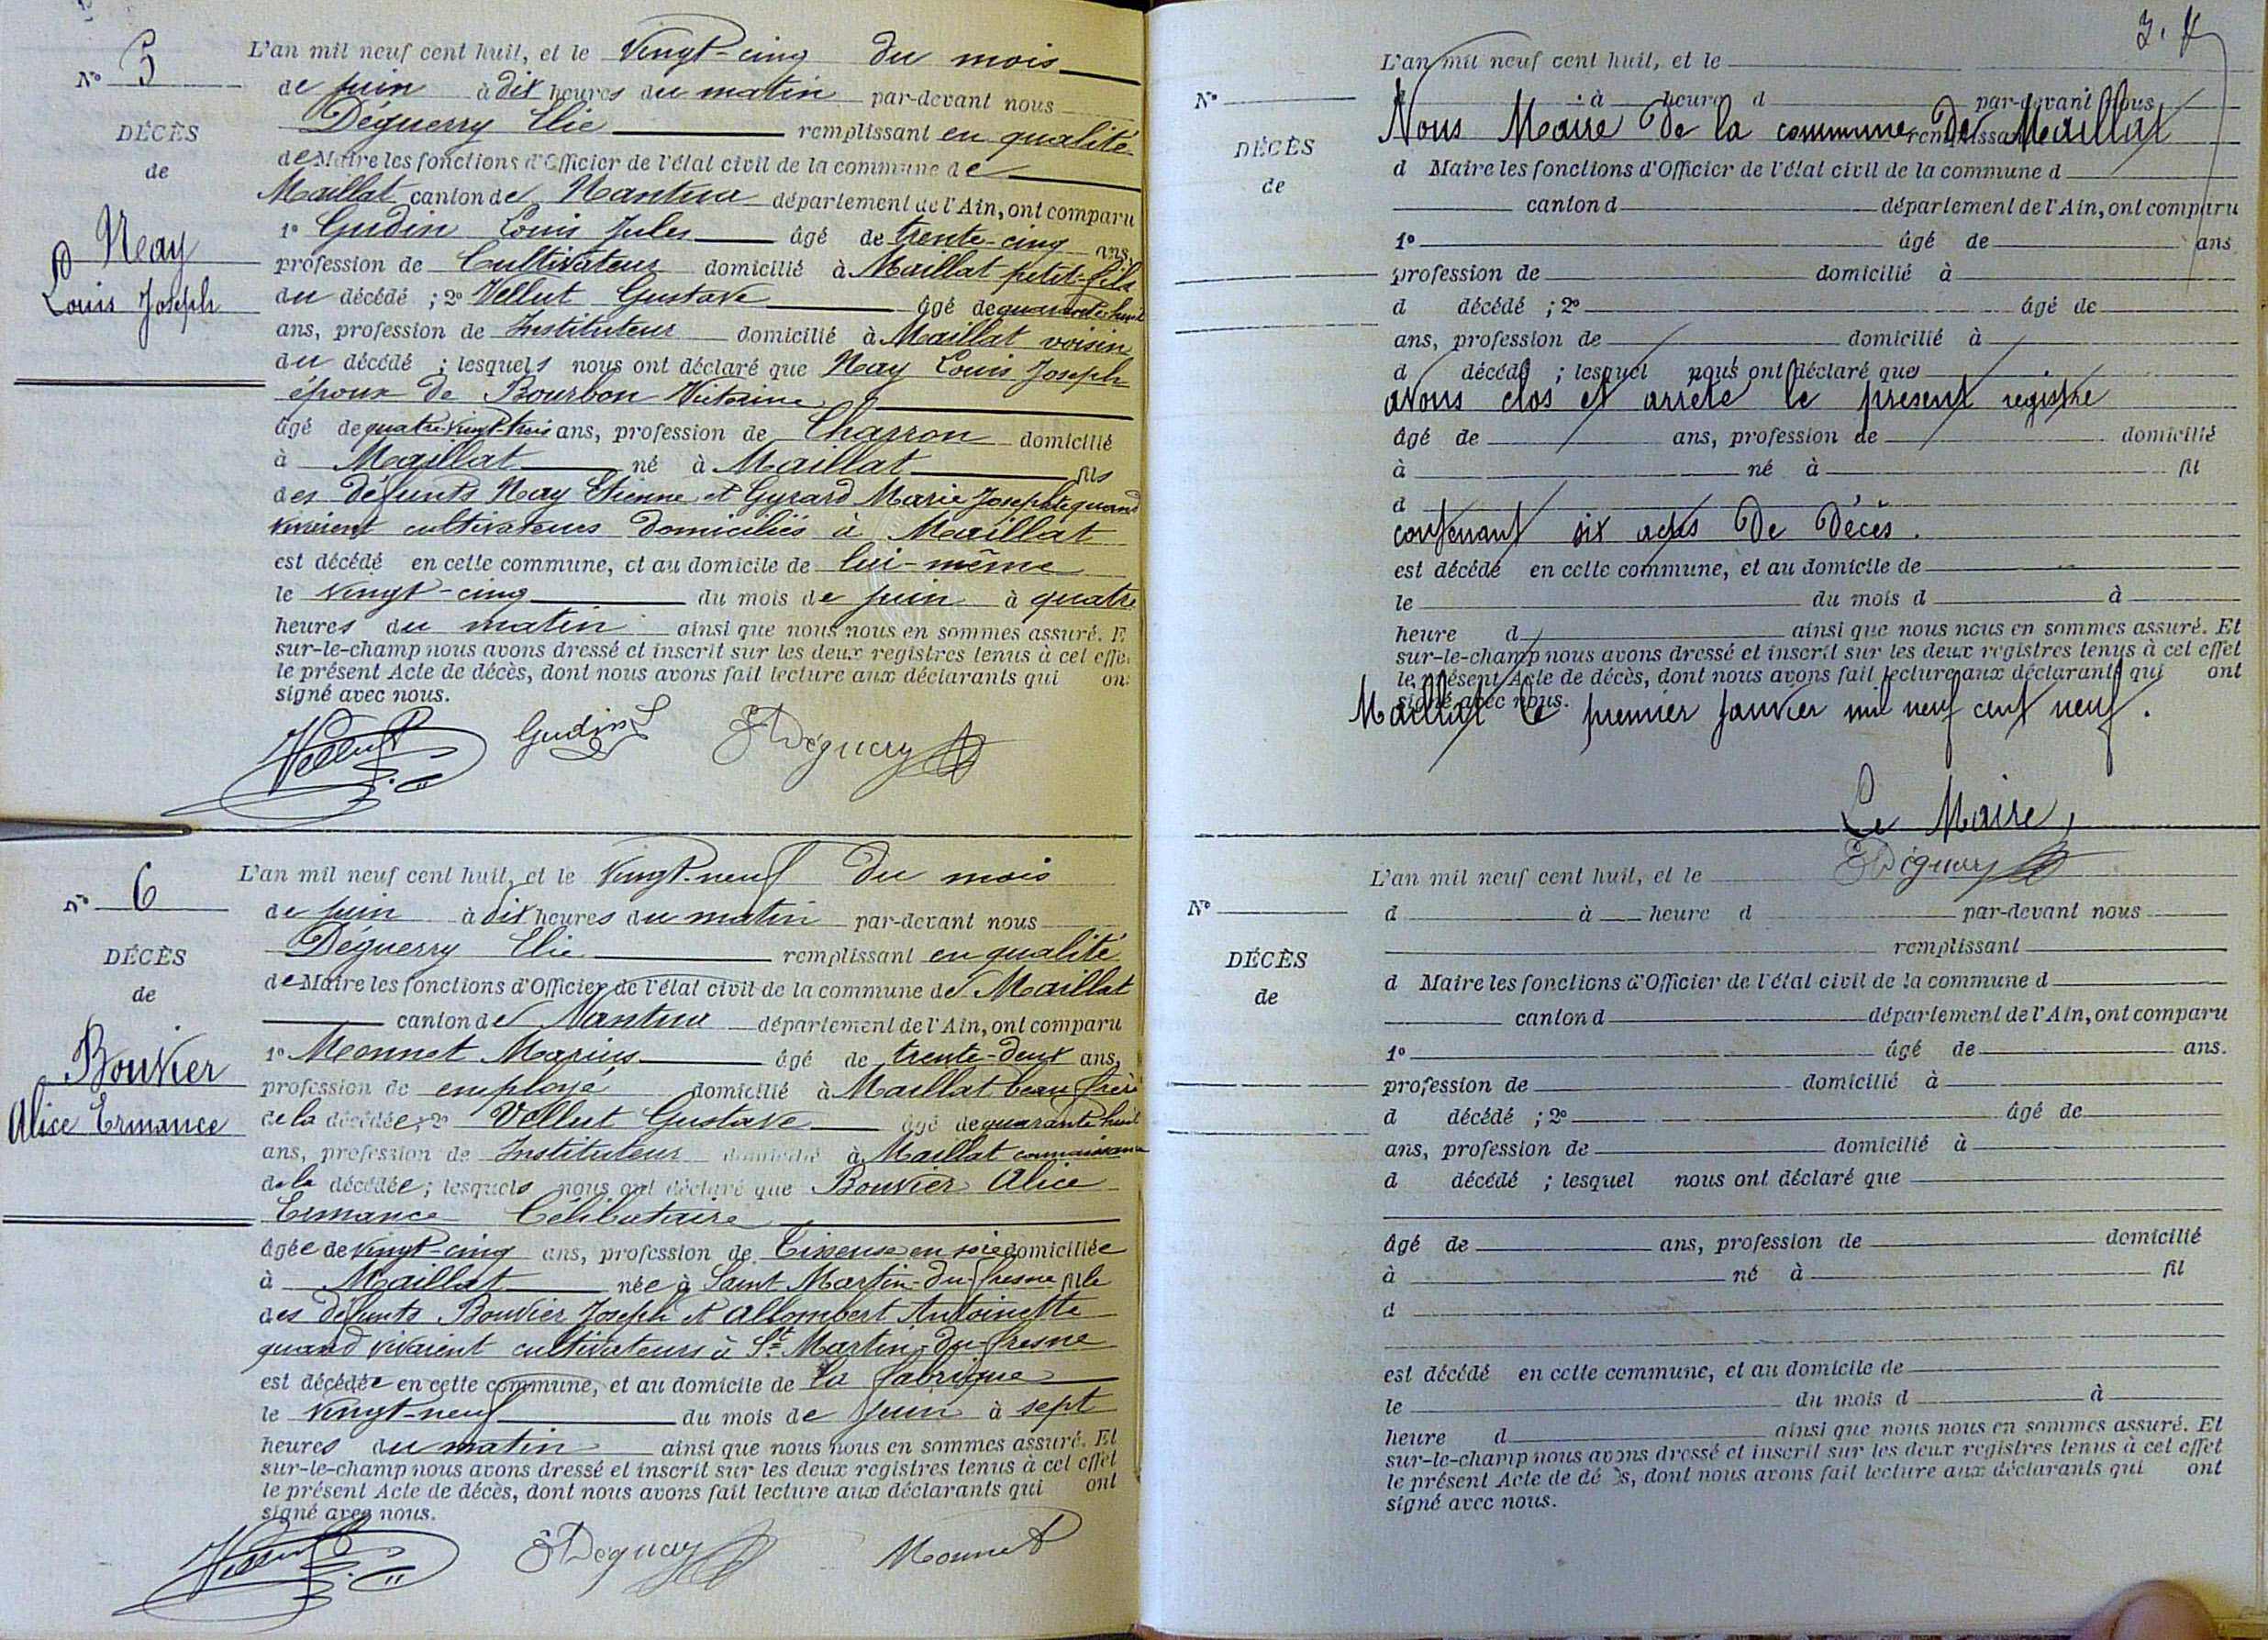 N° 5
DÉCÈS
de
Neay
Louis Joseph
L'an mil neuf cent huit, et le Vingt-cinq du mois
de juin à dix heures du matin par-devant nous
Déguerry Elie remplissant en qualité
de Maire les fonctions d'Officier de l'état civil de la commune de
Maillat canton de Nantua département de l'Ain, ont comparu
1° Gudin Louis Jules âgé de trente-cinq ans,
profession de Cultivateur domicilié à Maillat petit-fils
du décédé ; 2° Vellut Gustave âgé de quarante-huit
ans, profession de Instituteur domicilié à Maillat voisin
du décédé ; lesquels nous ont déclaré que Neay Louis Joseph
époux de Bourbon Victorine
âgé de quatre-vingt-trois ans, profession de Charron domicilié
à Maillat né à Maillat fils
des défunts Neay Etienne et Gyrard Marie Josephte quand
vivaient cultivateurs domiciliés à Maillat
est décédé en cette commune, et au domicile de lui-même
le vingt-cinq du mois de juin à quatre
heures du matin ainsi que nous nous en sommes assuré. E
sur-le-champ nous avons dressé et inscrit sur les deux registres tenus à cet effe
le présent Acte de décès, dont nous avons fait lecture aux déclarants qui on
signé avec nous.
Vellut Gudin L EDéguerry
N° 6
DÉCÈS
de
Bouvier
Alice Ermance
L'an mil neuf cent huit, et le Vingt-neuf du mois
de juin à dix heures du matin par-devant nous
Déguerry Elie remplissant en qualité
de Maire les fonctions d'Officier de l'état civil de la commune de Maillat
canton de Nantua département de l'Ain, ont comparu
1° Monnet Marius âgé de trente-deux ans,
profession de employé domicilié à Maillat beau frère
de la décédée ; 2° Vellut Gustave âgé de quarante huit
ans, profession de Instituteur domicilié à Maillat connaissance
de la décédée ; lesquels nous ont déclaré que Bouvier Alice
Ermance Célibataire
âgée de vingt-cinq ans, profession de Tisseuse en soie domiciliée
à Maillat née à Saint Martin-du-fresne fille
des défunts Bouvier Joseph et Allombert Antoinette
quand vivaient cultivateurs à St Martin-du-fresne
est décédée en cette commune, et au domicile de la fabrique
le vingt-neuf du mois de juin à sept
heures du matin ainsi que nous nous en sommes assuré. Et
sur-le-champ nous avons dressé et inscrit sur les deux registres tenus à cet effet
le présent Acte de décès, dont nous avons fait lecture aux déclarants qui ont
signé avec nous.
Vellut EDéguerry Monnet
N°
DÉCÈS
de
L'an mil neuf cent huit, et le
d à heure d par-devant nous
Nous Maire de la commune de Maillat
remplissant
d Maire les fonctions d'Officier de l'état civil de la commune d
canton d département de l'Ain, ont comparu
1° âgé de ans
profession de domicilié à
d décédé ; 2° âgé de
ans, profession de domicilié à
d décédé ; lesquel nous ont déclaré que
avons clos et arrêté le présent registre
âgé de ans, profession de domicilié
à né à fil
d
contenant six actes de décès.
est décédé en cette commune, et au domicile de
le du mois d à
heure d ainsi que nous nous en sommes assuré. Et
sur-le-champ nous avons dressé et inscrit sur les deux registres tenus à cet effet
le présent Acte de décès, dont nous avons fait lecture aux déclarants qui ont
signé avec nous.
Maillat le premier janvier mil neuf cent neuf.
Le Maire,
EDéguerry
N°
DÉCÈS
de
L'an mil neuf cent huit, et le
d à heure d par-devant nous
remplissant
d Maire les fonctions d'Officier de l'état civil de la commune d
canton d département de l'Ain, ont comparu
1° âgé de ans.
profession de domicilié à
d décédé ; 2° âgé de
ans, profession de domicilié à
d décédé ; lesquel nous ont déclaré que
âgé de ans, profession de domicilié
à né à fil
d
est décédé en cette commune, et au domicile de
le du mois d à
heure d ainsi que nous nous en sommes assuré. Et
sur-le-champ nous avons dressé et inscrit sur les deux registres tenus à cet effet
le présent Acte de dé s, dont nous avons fait lecture aux déclarants qui ont
signé avec nous.